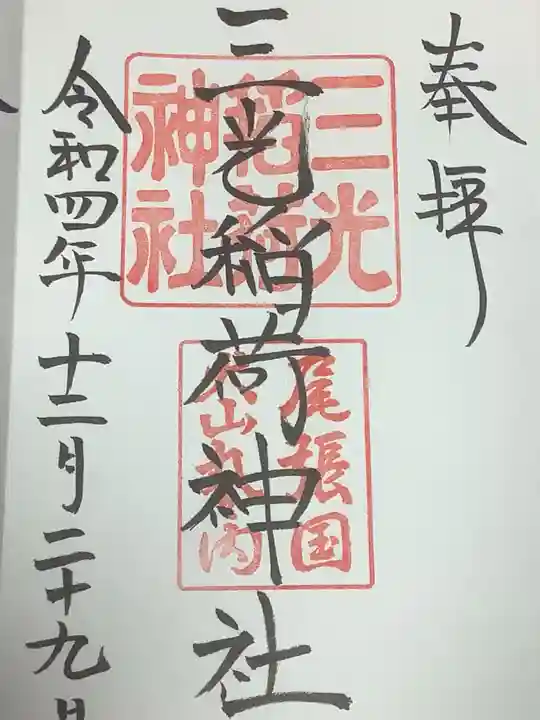 奉拝
三光稲荷神社
三光
稲荷
神社
尾張国
犬山丸の内
令和四年十二月二十九日